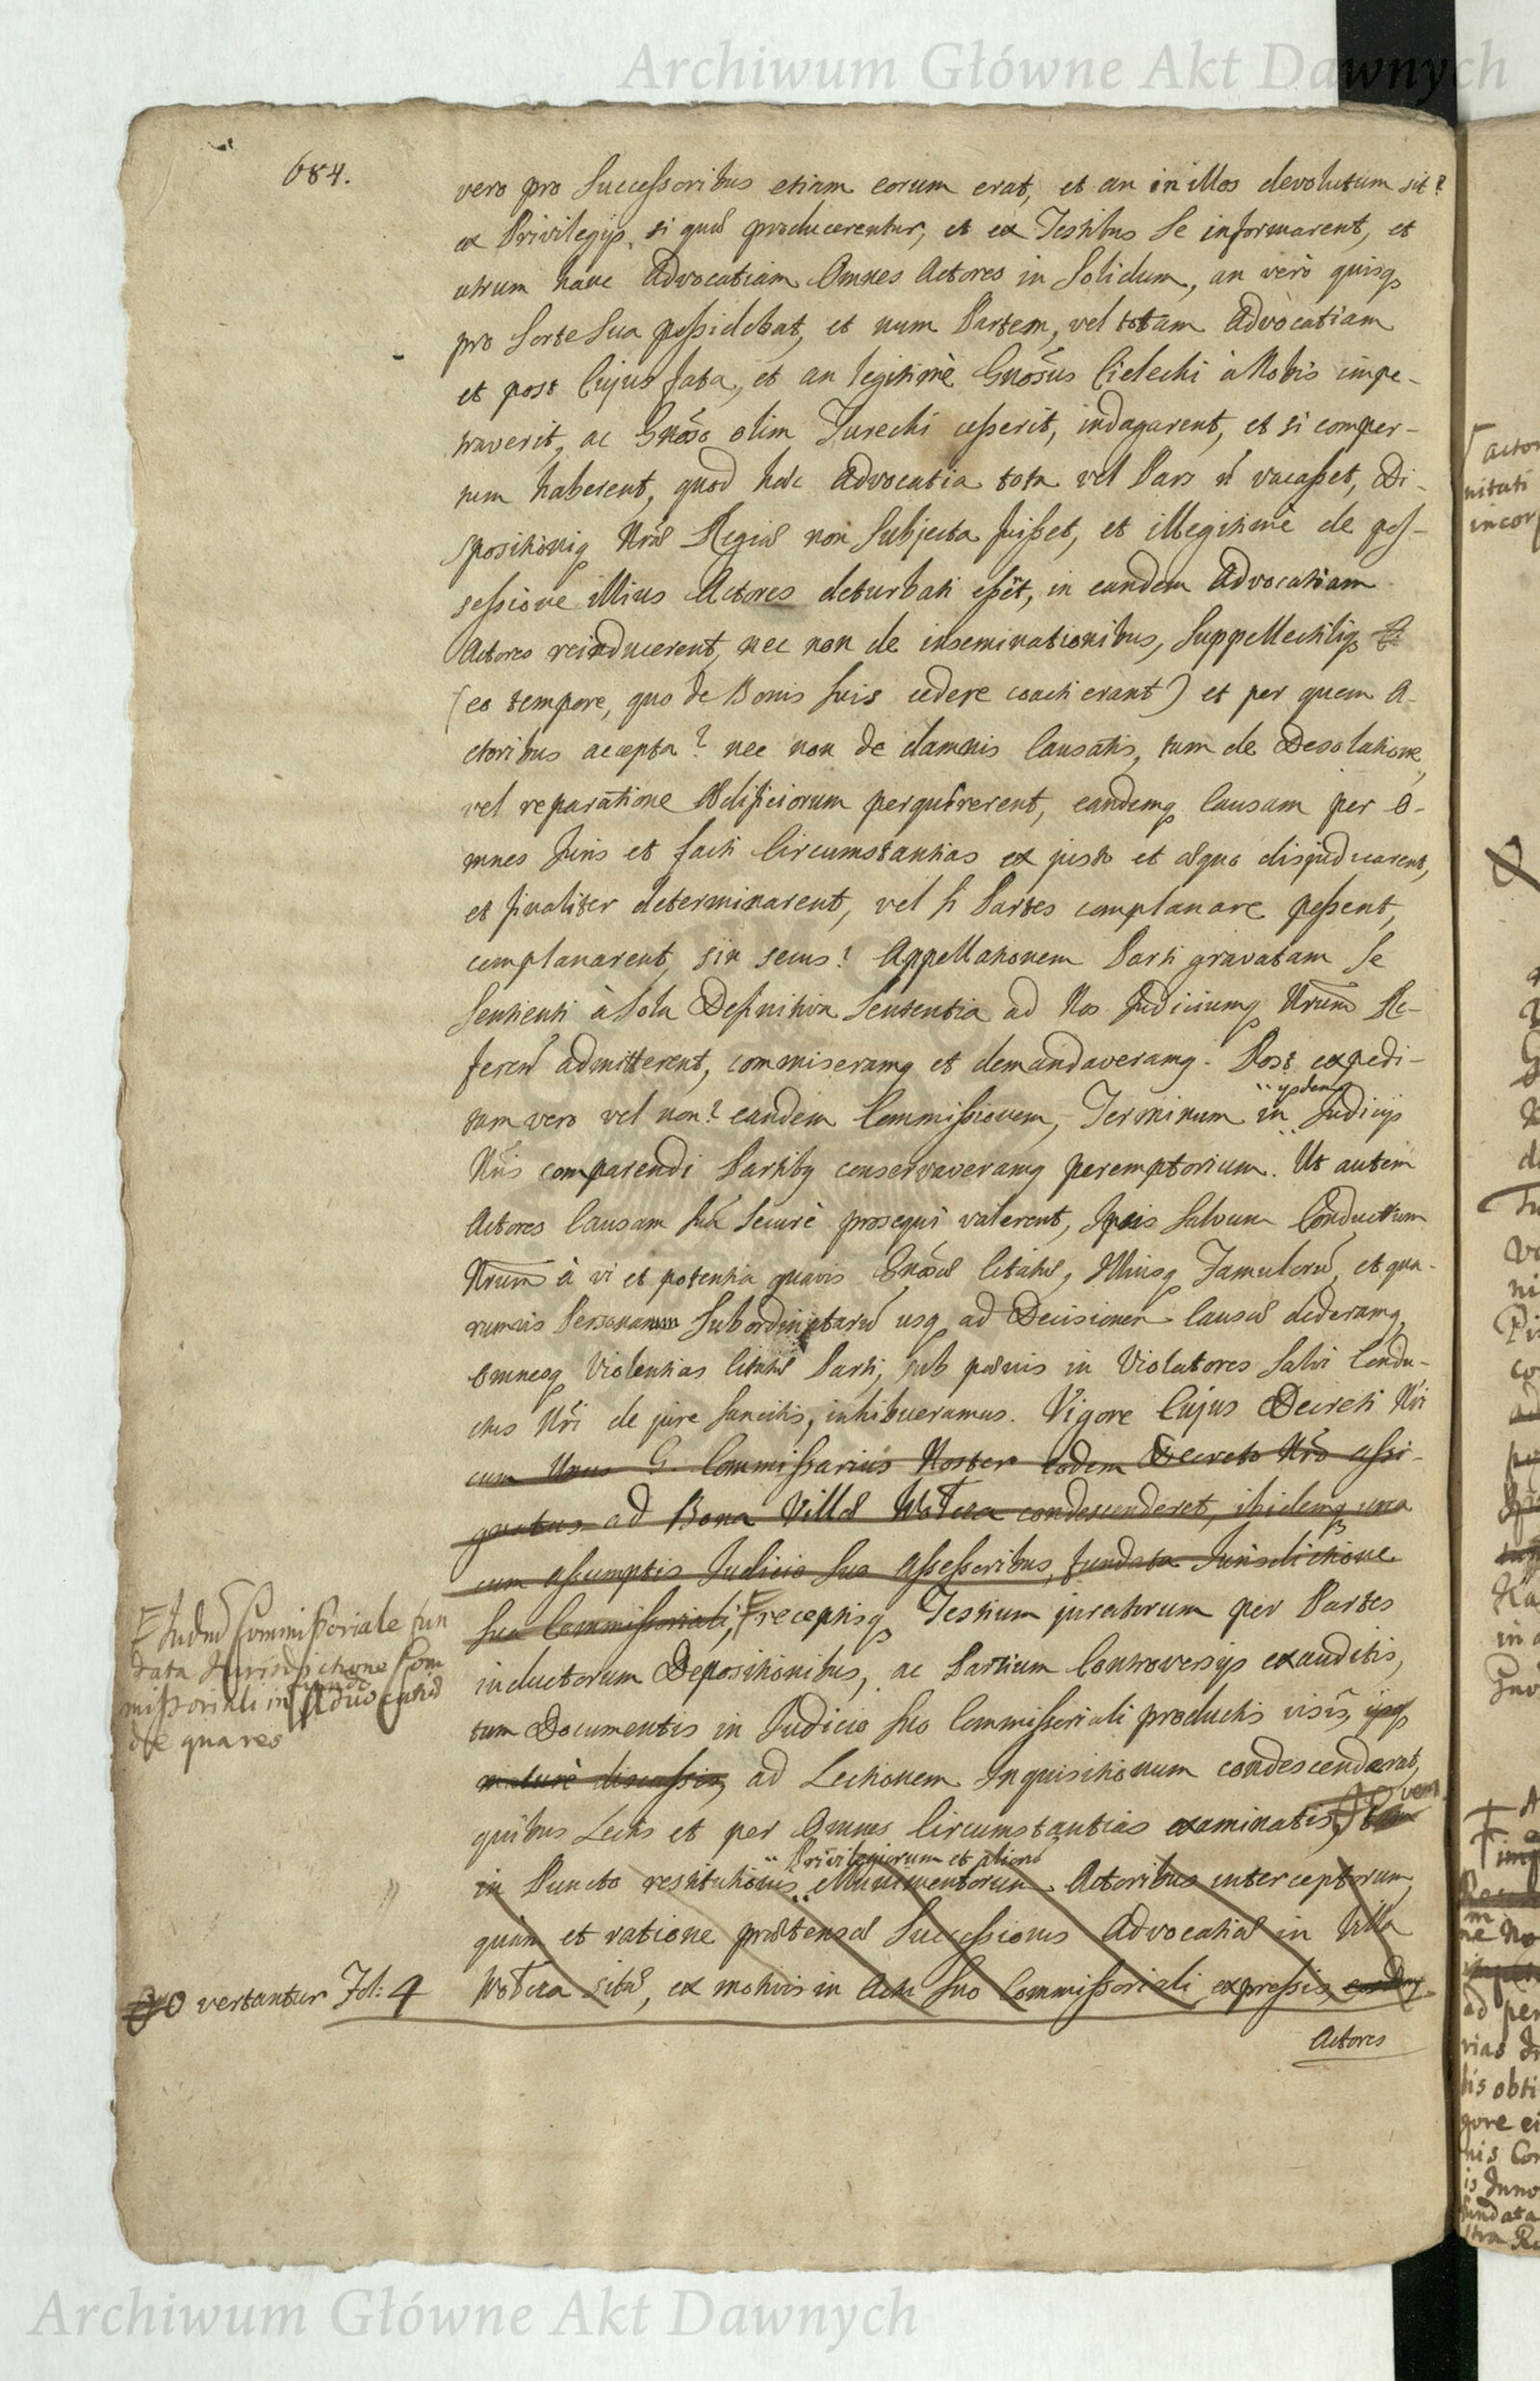 Archiwum Główne Akt Dawnych
684.
vero pro Successoribus etiam eorum erat, et an in illos devolutum sit?
ex Privilegijs, si quæ producerentur, et ex Testibus se informarent, et
utrum hanc Advocatiam Omnes Actores in Solidum, an verò quisq
pro Sorte Sua possidebat, et num Partem, vel totam Advocatiam
et post Cujus fata, et an legitimè Gnosus Cielecki à Nobis impe-
traverit, ac Gnoso olim Turecki cesserit, indagarent, et si comper-
tum haberent, quod hæc Advocatia tota vel Pars ñ vacasset, Di-
spositioniq Nræ Regiæ non Subjecta fuisset, et illegitimè de pos-
sessione illius Actores deturbati essēt, in eandem Advocatiam
Actores reinducerent, nec non de inseminationibus, Suppellectiliq
(eo tempore, quo de Bonis suis cedere coacti erant) et per quem A-
ctoribus accepta? nec non de damnis Causatis, tum de Desolatione,
vel reparatione Ædificiorum perquirerent, eandemq Causam per O-
mnes Juris et facti Circumstantias ex justo et æquo disjudicarent,
et finaliter determinarent, vel si Partes complanare possent,
complanarent, sin secus? Appellationem Parti gravatam Se
Sentienti à Sola Definitiva Sententia ad Nos Judiciumq Nrum Re-
ferend admitterent, commiseramq et demandaveramq. Post expedi-
ijsdemq
tam vero vel non? eandem Commissionem, Terminum in Judicijs
Nris comparendi Partibq conservaveramq peremptorium. Ut autem
Actores Causam suã Securè prosequi valerent, Ipsis Salvum Conductum
Nrum à vi et potentia quavis Gnosæ Citatæ, Illiusq Famulorũ, et qua-
rumvis Personarum Subordinatarũ usq ad Decisionem Causæ dederamq,
Omnesq Violentias Citatæ Parti, sub pœnis in Violatores Salvi Condu-
ctus Nri de jure Sancitis, inhibueramus. Vigore Cujus Decreti Nri
cum Unus G. Commissarius Noster eodem Decreto Nro assi-
gnatus ad Bona Villæ Wotcza condescenderet, ibidemq una
cum assumptis Judicio suo Assessoribus, fundata Jurisdictione
Sua Commissoriali, receptisq Testium juratorum per Partes
Judm Commissoriale fun
data Jurisdictione Com
missoriali in fundo Advocatiæ
de quares
inductorum Depositionibus, ac Partium Controversijs exauditis,
tum Documentis in Judicio suo Commissoriali productis visis, ijsq
maturè discussis, ad Lectionem Inquisitionum condescenderat,
quibus Lectis et per Omnes Circumstantias examinatis, tam
Privilegiorum et aliorũ
in Puncto restitutionis Munimentorum Actoribus interceptorum,
quàm et ratione prætensæ Successionis Advocatiæ in Villa
vertantur Fol: 4
Wotcza sitæ, ex motivis in Actu suo Commissoriali expressis,
Actores
Archiwum Główne Akt Dawnych